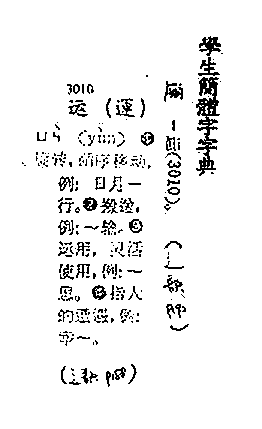 學生簡體字字典
3010
运（運）
ㄩㄣˋ（yùn）❶
旋转，循序移动，
例：日月一
行。❷搬送，
例：～输。❸
运用，灵活
使用，例：～
思。❹指人
的遭遇，例：
幸～。
p158
(3010)。